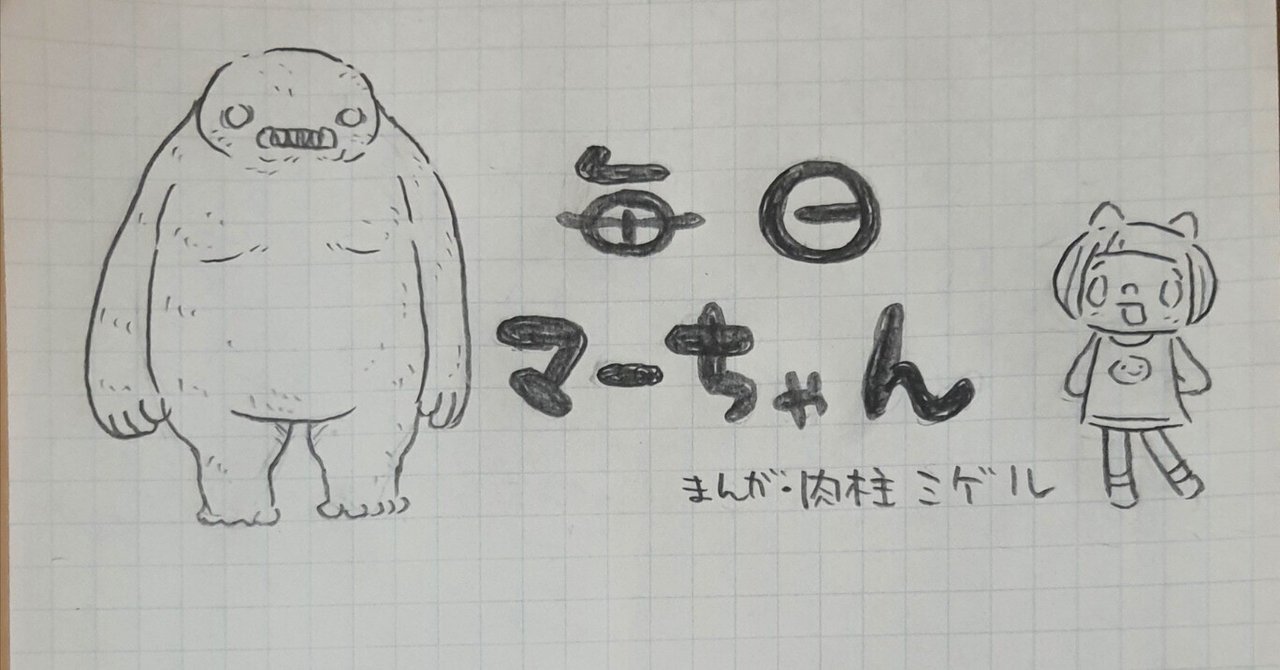 毎日
マーちゃん
まんが・肉柱ミゲル